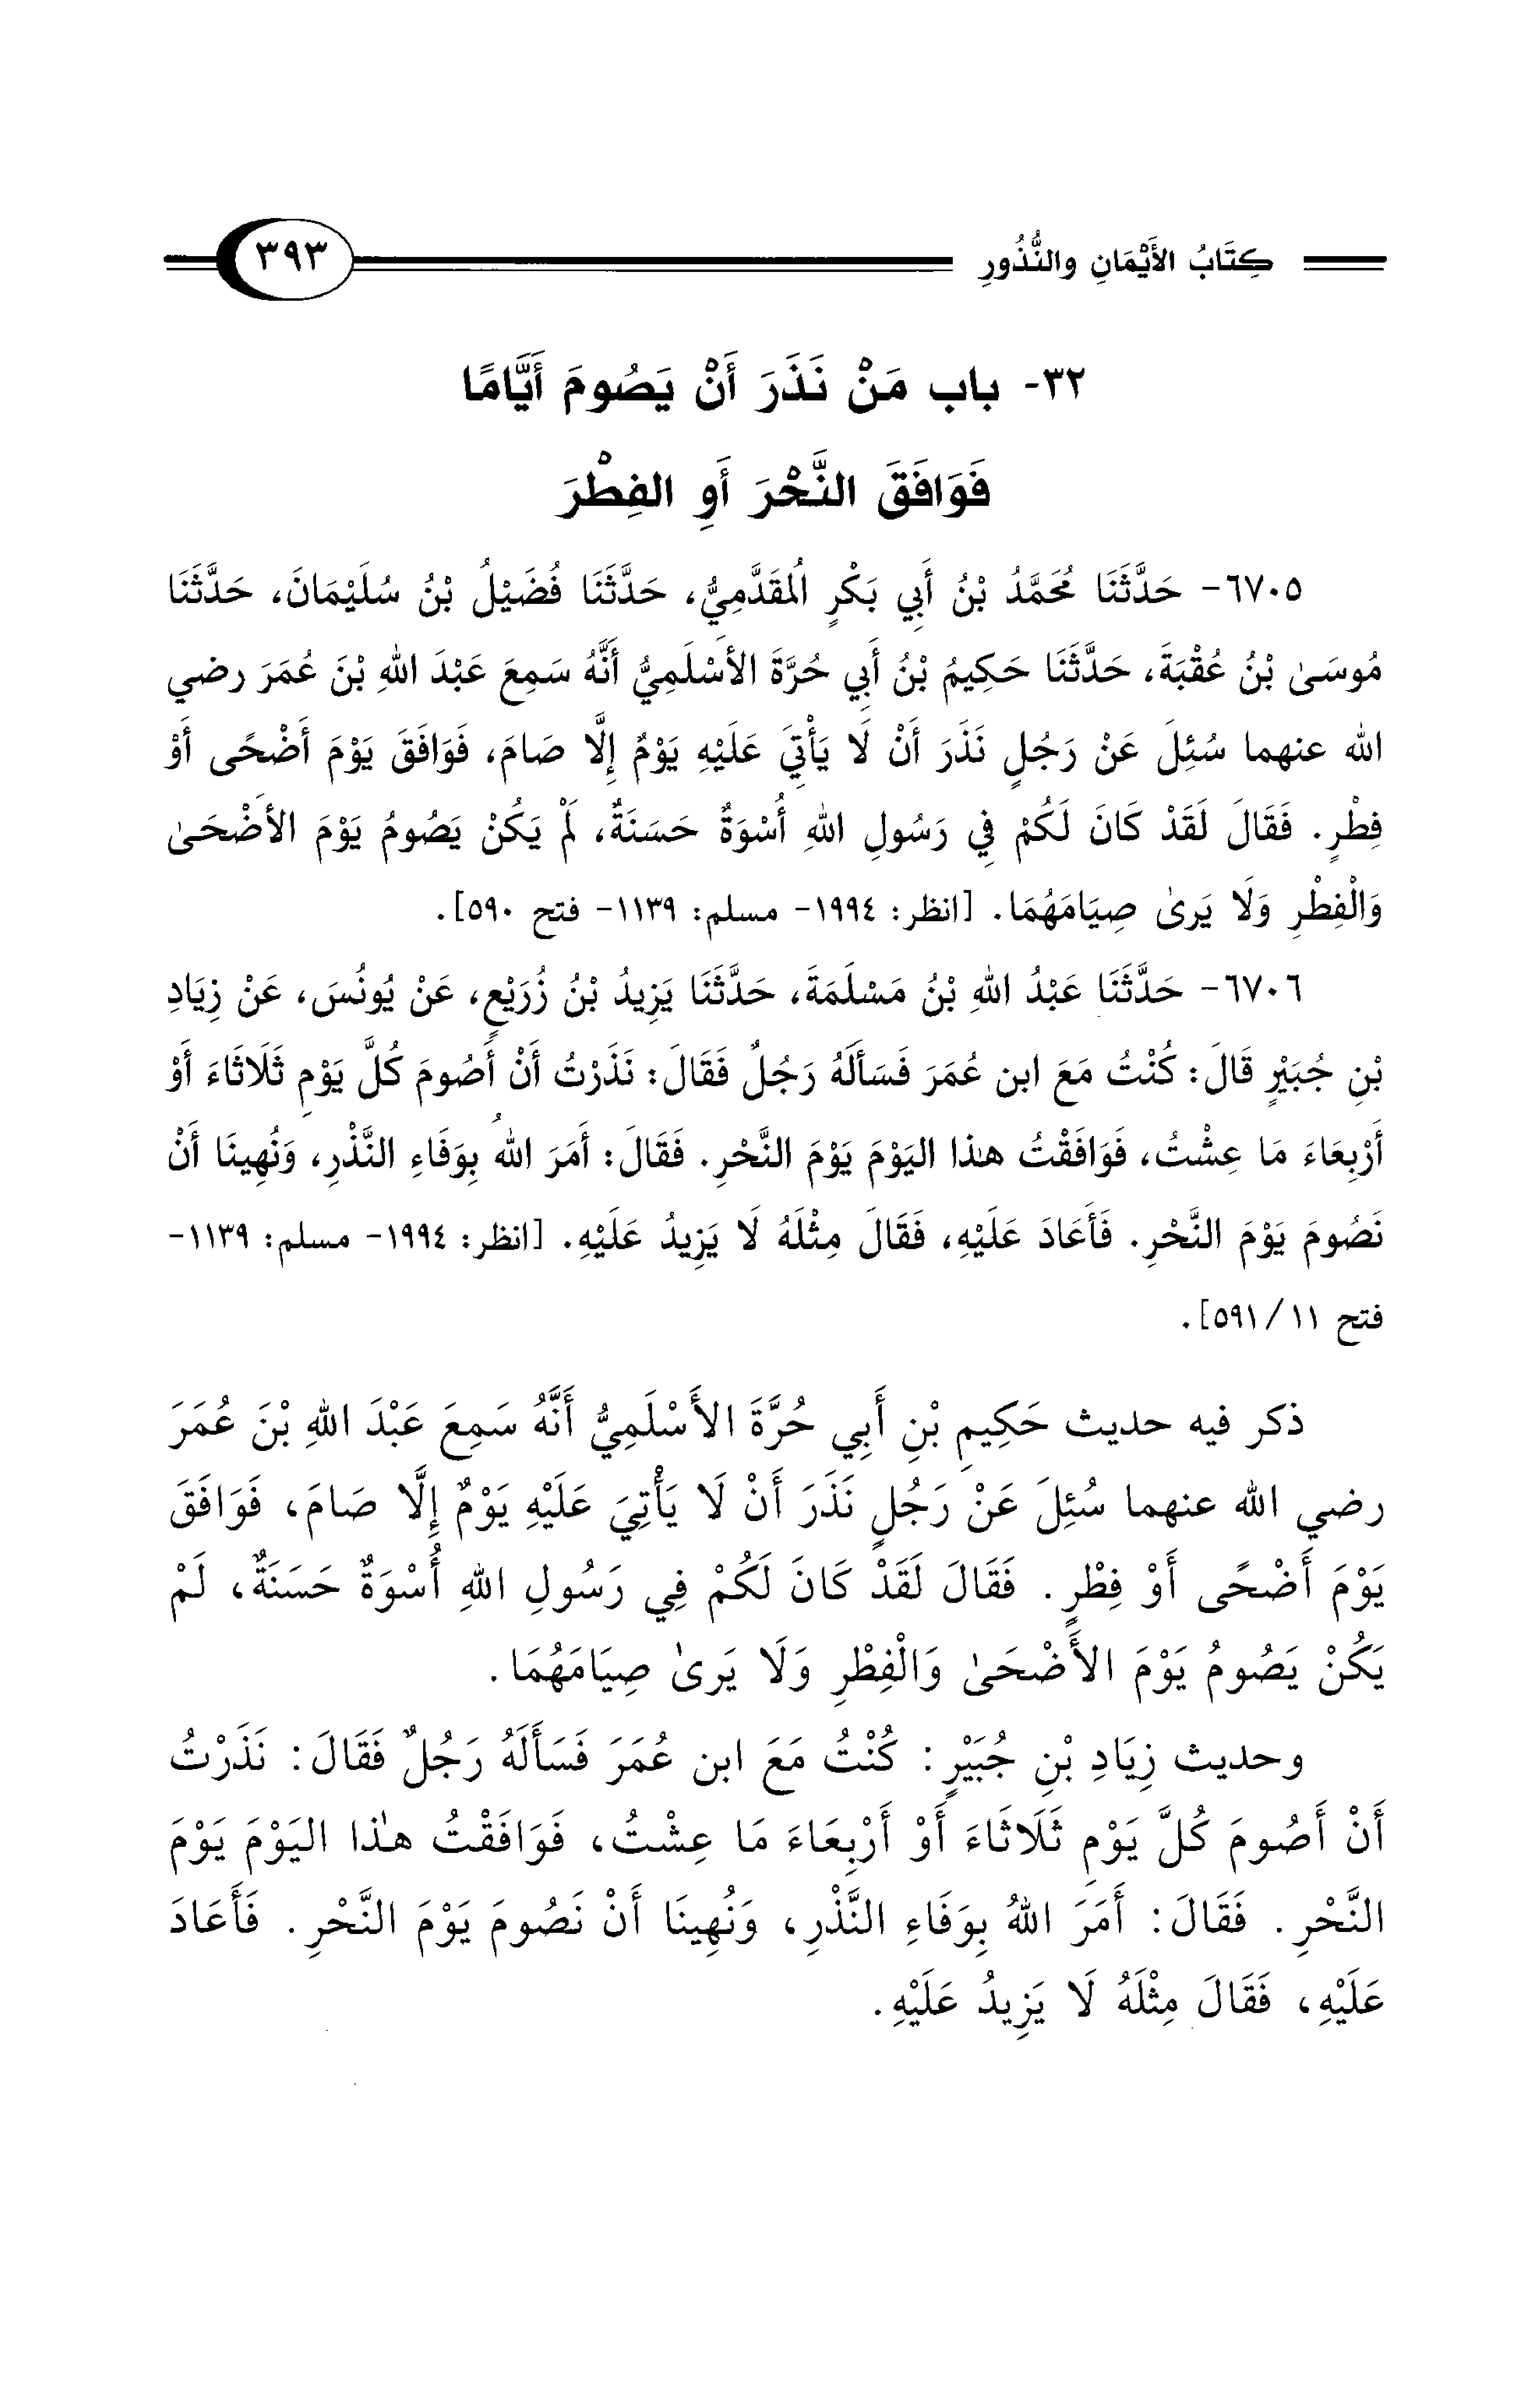 كِتَابُ الأَيْمَانِ والنُّذُورِ ٣٩٣
٣٢- باب مَنْ نَذَرَ أَنْ يَصُومَ أَيَّامًا
فَوَافَقَ النَّحْرَ أَوِ الفِطْرَ
٦٧٠٥- حَدَّثَنَا مُحَمَّدُ بْنُ أَبِي بَكْرٍ الُمقَدَّمِيُّ، حَدَّثَنَا فُضَيْلُ بْنُ سُلَيْمَانَ، حَدَّثَنَا
مُوسَىٰ بْنُ عُقْبَةَ، حَدَّثَنَا حَكِيمُ بْنُ أَبِي حُرَّةَ الأَسْلَمِيُّ أَنَّهُ سَمِعَ عَبْدَ اللهِ بْنَ عُمَرَ رضي
الله عنهما سُئِلَ عَنْ رَجُلٍ نَذَرَ أَنْ لَا يَأْتِيَ عَلَيْهِ يَوْمٌ إِلَّا صَامَ، فَوَافَقَ يَوْمَ أَضْحًى أَوْ
فِطْرٍ. فَقَالَ لَقَدْ كَانَ لَكُمْ فِي رَسُولِ اللهِ أُسْوَةٌ حَسَنَةٌ، لَمْ يَكُنْ يَصُومُ يَوْمَ الأَضْحَىٰ
وَالْفِطْرِ وَلَا يَرىٰ صِيَامَهُمَا. [انظر: ١٩٩٤- مسلم: ١١٣٩- فتح ٥٩٠].
٦٧٠٦- حَدَّثَنَا عَبْدُ اللهِ بْنُ مَسْلَمَةَ، حَدَّثَنَا يَزِيدُ بْنُ زُرَيْعٍ، عَنْ يُونُسَ، عَنْ زِيَادِ
بْنِ جُبَيْرٍ قَالَ: كُنْتُ مَعَ ابن عُمَرَ فَسَأَلَهُ رَجُلٌ فَقَالَ: نَذَرْتُ أَنْ أَصُومَ كُلَّ يَوْمِ ثَلَاثَاءَ أَوْ
أَرْبِعَاءَ مَا عِشْتُ، فَوَافَقْتُ هٰذا اليَوْمَ يَوْمَ النَّحْرِ. فَقَالَ: أَمَرَ اللهُ بِوَفَاءِ النَّذْرِ، وَنُهِينَا أَنْ
نَصُومَ يَوْمَ النَّحْرِ. فَأَعَادَ عَلَيْهِ، فَقَالَ مِثْلَهُ لَا يَزِيدُ عَلَيْهِ. [انظر: ١٩٩٤- مسلم: ١١٣٩-
فتح ١١/ ٥٩١].
ذكر فيه حديث حَكِيمِ بْنِ أَبِي حُرَّةَ الأَسْلَمِيُّ أَنَّهُ سَمِعَ عَبْدَ اللهِ بْنَ عُمَرَ
رضي الله عنهما سُئِلَ عَنْ رَجُلٍ نَذَرَ أَنْ لَا يَأْتِيَ عَلَيْهِ يَوْمٌ إِلَّا صَامَ، فَوَافَقَ
يَوْمَ أَضْحًى أَوْ فِطْرٍ. فَقَالَ لَقَدْ كَانَ لَكُمْ فِي رَسُولِ اللهِ أُسْوَةٌ حَسَنَةٌ، لَمْ
يَكُنْ يَصُومُ يَوْمَ الأَضْحَىٰ وَالْفِطْرِ وَلَا يَرىٰ صِيَامَهُمَا.
وحديث زِيَادِ بْنِ جُبَيْرٍ: كُنْتُ مَعَ ابن عُمَرَ فَسَأَلَهُ رَجُلٌ فَقَالَ: نَذَرْتُ
أَنْ أَصُومَ كُلَّ يَوْمِ ثَلَاثَاءَ أَوْ أَرْبِعَاءَ مَا عِشْتُ، فَوَافَقْتُ هٰذا اليَوْمَ يَوْمَ
النَّحْرِ. فَقَالَ: أَمَرَ اللهُ بِوَفَاءِ النَّذْرِ، وَنُهِينَا أَنْ نَصُومَ يَوْمَ النَّحْرِ. فَأَعَادَ
عَلَيْهِ، فَقَالَ مِثْلَهُ لَا يَزِيدُ عَلَيْهِ.